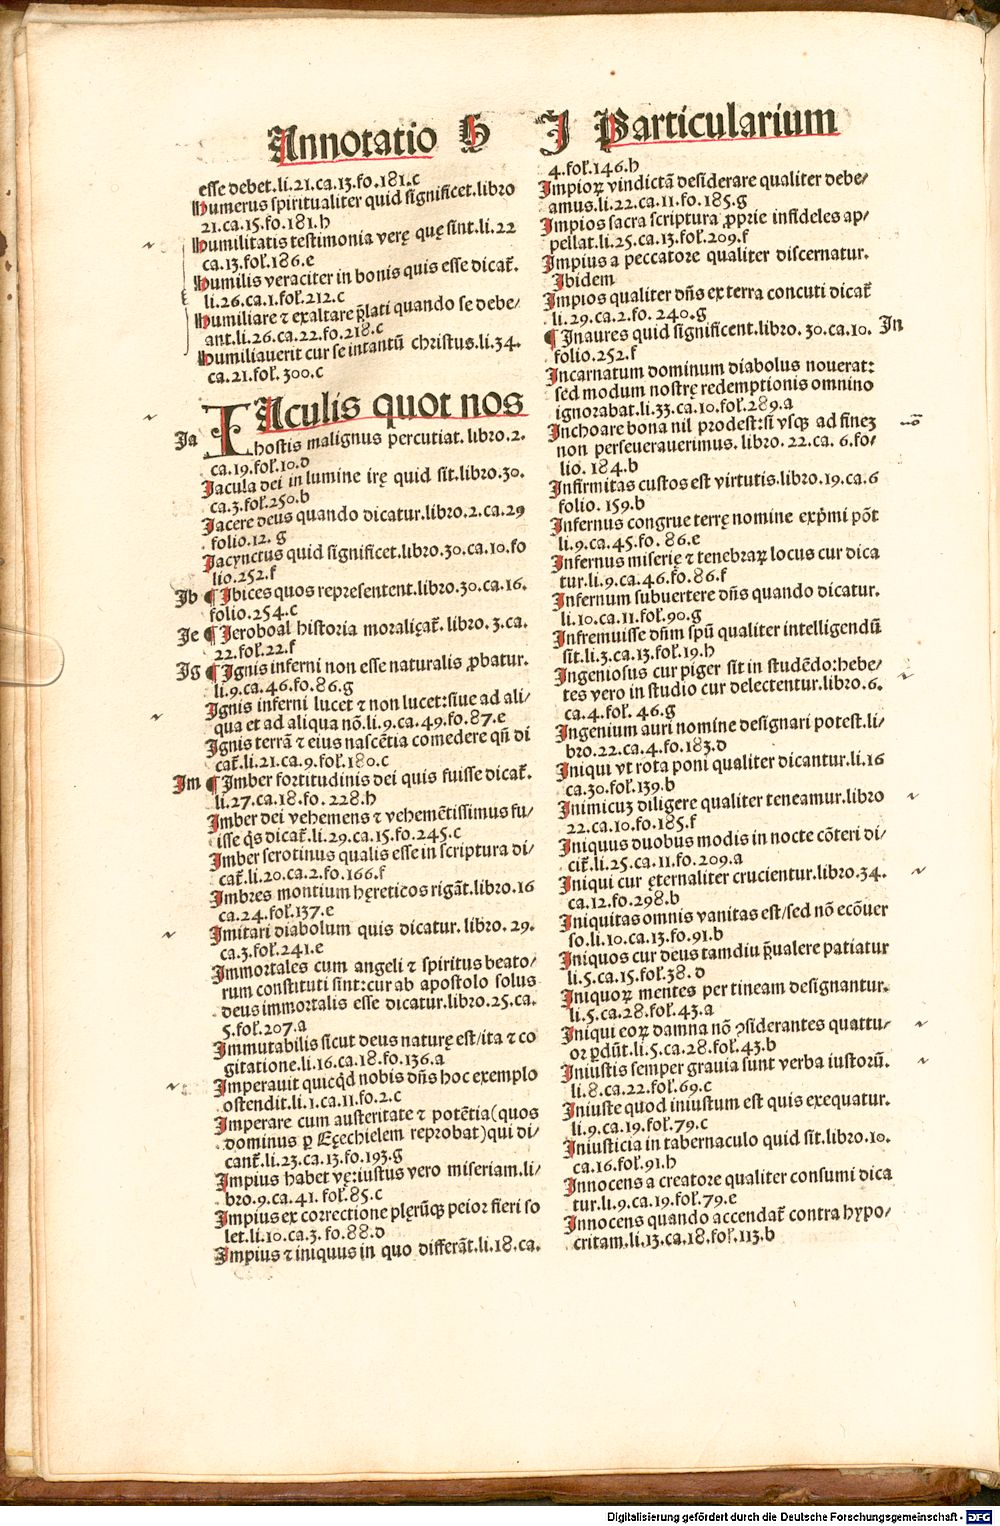 Annotatio H I Particularium
esse debet.li.21.ca.13.fo.181.c
Humerus spiritualiter quid significet.libro
21.ca.15.fo.181.h
Humilitatis testimonia verę quę sint.li.22
ca.13.foł.186.e
Humilis veraciter in bonis quis esse dicat̃.
li.26.ca.1.foł.212.c
Humiliare ⁊ exaltare p̃lati quando se debe/
ant.li.26.ca.22.fo.218.c
Humiliauerit cur se intantū christus.li.34.
ca.21.foł.300.c
IAculis quot nos
Ia
hostis malignus percutiat.libro.2.
ca.19.foł.10.d
Iacula dei in lumine irę quid sit.libro.30.
ca.3.foł.250.b
Iacere deus quando dicatur.libro.2.ca.29
folio.12.g
Iacynctus quid significet.libro.30.ca.10.fo
lio.252.f
Ib ¶ Ibices quos representent.libro.30.ca.16.
folio.254.c
Ie ¶ Ieroboal historia moraliçat̃.libro.3.ca.
22.foł.22.f
Ig ¶ Ignis inferni non esse naturalis ꝓbatur.
li.9.ca.46.fo.86.g
Ignis inferni lucet ⁊ non lucet:siue ad ali/
qua et ad aliqua nõ.li.9.ca.49.fo.87.e
Ignis terrā ⁊ eius nascētia comedere qñ di
cat̃.li.21.ca.9.foł.180.c
Im ¶ Imber fortitudinis dei quis fuisse dicat̃.
li.27.ca.18.fo.228.h
Imber dei vehemens ⁊ vehemētissimus fu/
isse q̇s dicat̃.li.29.ca.15.fo.245.c
Imber serotinus qualis esse in scriptura di/
cat̃.li.20.ca.2.fo.166.f
Imbres montium hęreticos rigāt.libro.16
ca.24.foł.137.e
Imitari diabolum quis dicatur.libro.29.
ca.3.foł.241.e
Immortales cum angeli ⁊ spiritus beato/
rum constituti sint:cur ab apostolo solus
deus immortalis esse dicatur.libro.25.ca.
5.foł.207.a
Immutabilis sicut deus naturę est/ita ⁊ co
gitatione.li.16.ca.18.fo.136.a
Imperauit quicq̇d nobis dñs hoc exemplo
ostendit.li.1.ca.11.fo.2.c
Imperare cum austeritate ⁊ potētia(quos
dominus ꝑ Eçechielem reprobat)qui di/
cant̃.li.23.ca.13.fo.193.g
Impius habet vę:iustus vero miseriam.li/
bro.9.ca.41.foł.85.c
Impius ex correctione plęrūqꝫ peior fieri so
let.li.10.ca.3.fo.88.d
Impius ⁊ iniquus in quo differāt.li.18.ca.
4.foł.146.h
Impioꝝ vindictā desiderare qualiter debe/
amus.li.22.ca.11.fo.185.g
Impios sacra scriptura ꝓprie infideles ap/
pellat.li.25.ca.13.foł.209.f
Impius a peccatore qualiter discernatur.
Ibidem
Impios qualiter dñs ex terra concuti dicat̃
li.29.ca.2.fo.240.g
¶ Inaures quid significent.libro.30.ca.10. In
folio.252.f
Incarnatum dominum diabolus nouerat:
sed modum nostrę redemptionis omnino
ignorabat.li.33.ca.10.foł.289.a
Inchoare bona nil prodest:si vsqꝫ ad fineꝫ
non perseuerauerimus.libro.22.ca.6.fo/
lio.184.b
Infirmitas custos est virtutis.libro.19.ca.6
folio.159.b
Infernus congrue terrę nomine exp̃mi põt
li.9.ca.45.fo.86.e
Infernus miserię ⁊ tenebraꝝ locus cur dica
tur.li.9.ca.46.fo.86.f
Infernum subuertere dñs quando dicatur.
li.10.ca.11.foł.90.g
Infremuisse dñm spū qualiter intelligendū
sit.li.3.ca.13.foł.19.h
Ingeniosus cur piger sit in studēdo:hebe/
tes vero in studio cur delectentur.libro.6.
ca.4.foł.46.g
Ingenium auri nomine designari potest.li/
bro.22.ca.4.fo.183.d
Iniqui vt rota poni qualiter dicantur.li.16
ca.30.foł.139.b
Inimicuꝫ diligere qualiter teneamur.libro
22.ca.10.fo.185.f
Iniquus duobus modis in nocte cōteri di/
cit̃.li.25.ca.11.fo.209.a
Iniqui cur ęternaliter crucientur.libro.34.
ca.12.fo.298.b
Iniquitas omnis vanitas est/sed nõ ecōuer
so.li.10.ca.13.fo.91.b
Iniquos cur deus tamdiu p̃ualere patiatur
li.5.ca.15.foł.38.d
Iniquoꝝ mentes per tineam designantur.
li.5.ca.28.foł.43.a
Iniqui eoꝝ damna nõ ꝯsiderantes quattu/
or ꝑdūt.li.5.ca.28.foł.43.b
Iniustis semper grauia sunt verba iustorū.
li.8.ca.22.foł.69.c
Iniuste quod iniustum est quis exequatur.
li.9.ca.19.foł.79.c
Iniusticia in tabernaculo quid sit.libro.10.
ca.16.foł.91.h
Innocens a creatore qualiter consumi dica
tur.li.9.ca.19.foł.79.e
Innocens quando accendat̃ contra hypo/
critam.li.13.ca.18.foł.113.b
Digitalisierung gefördert durch die Deutsche Forschungsgemeinschaft - DFG